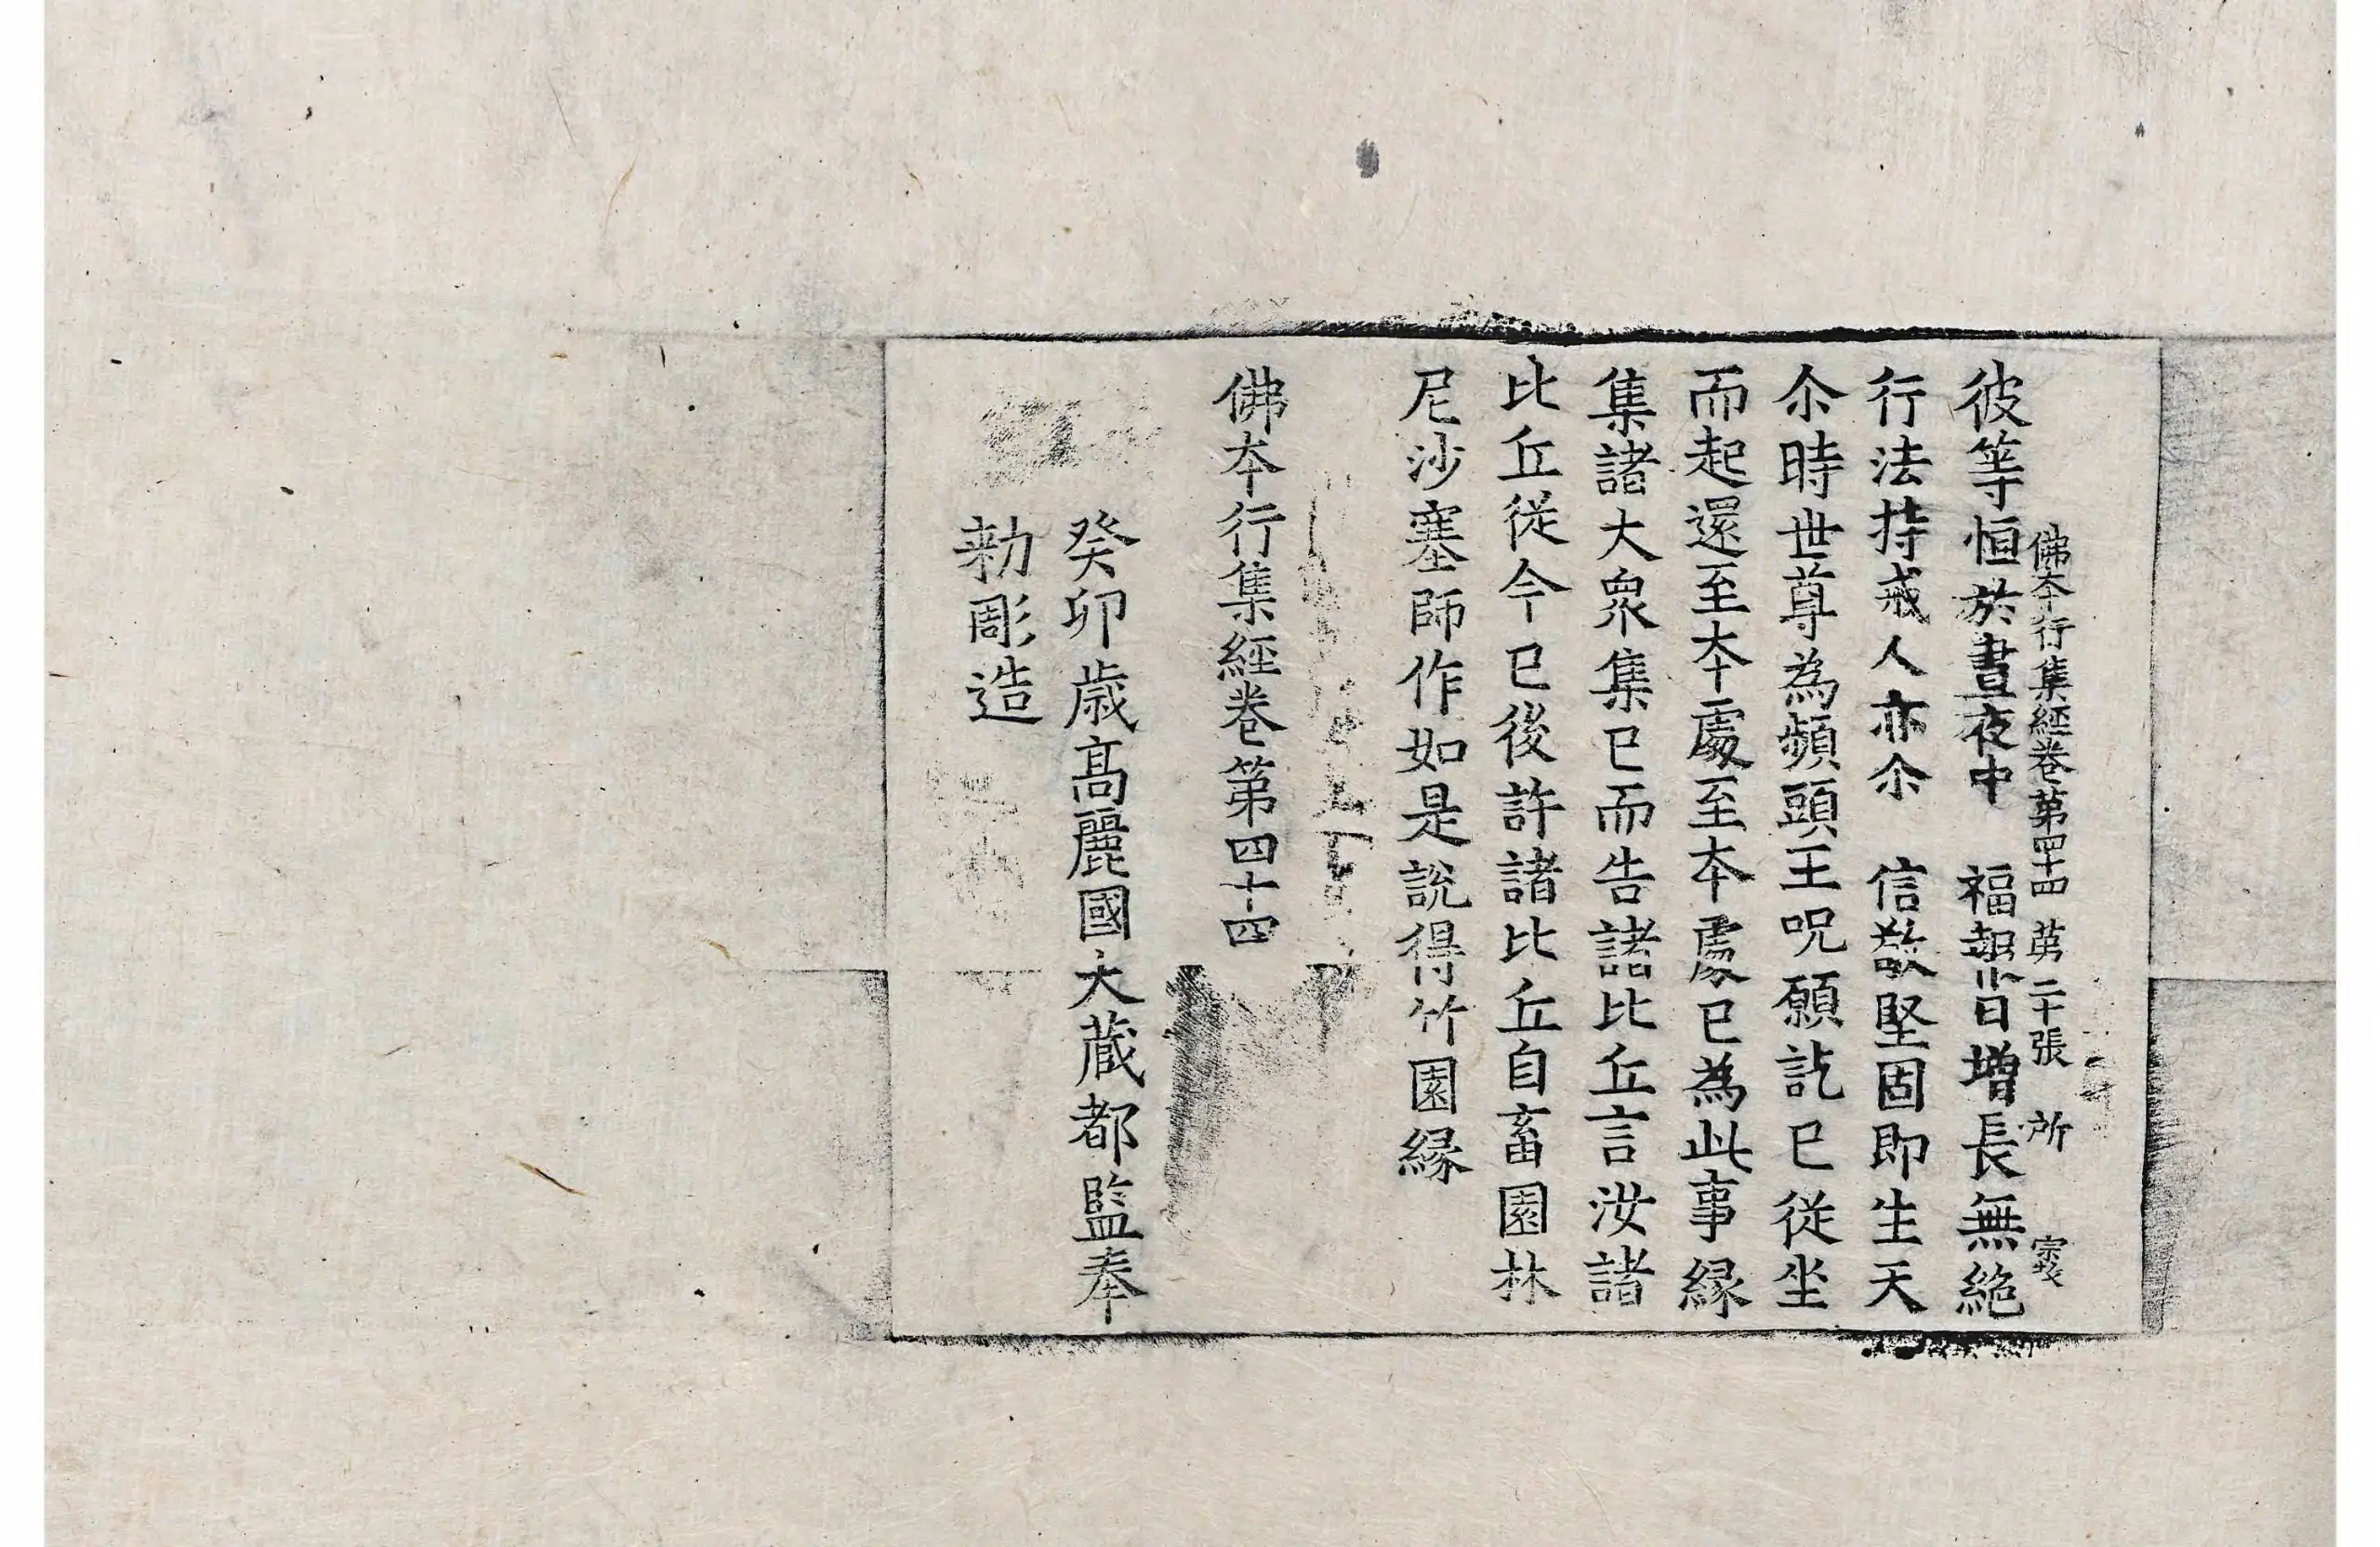 佛夲行集經卷第四十四 苐二十張 所
彼等恒於晝夜中 福報昔日增長無絶
行法持戒人亦尒 信敬堅固即生天
尒時世尊為頻頭王呪願訖已從坐
而起還至夲處至夲處已為此事縁
集諸大衆集已而告諸比丘言汝諸
比丘従今已後許諸比丘自畜園林
尼沙塞師作如是說得竹園縁
佛夲行集經卷第四十四
癸卯歳高麗國大藏都監奉
勅彫造